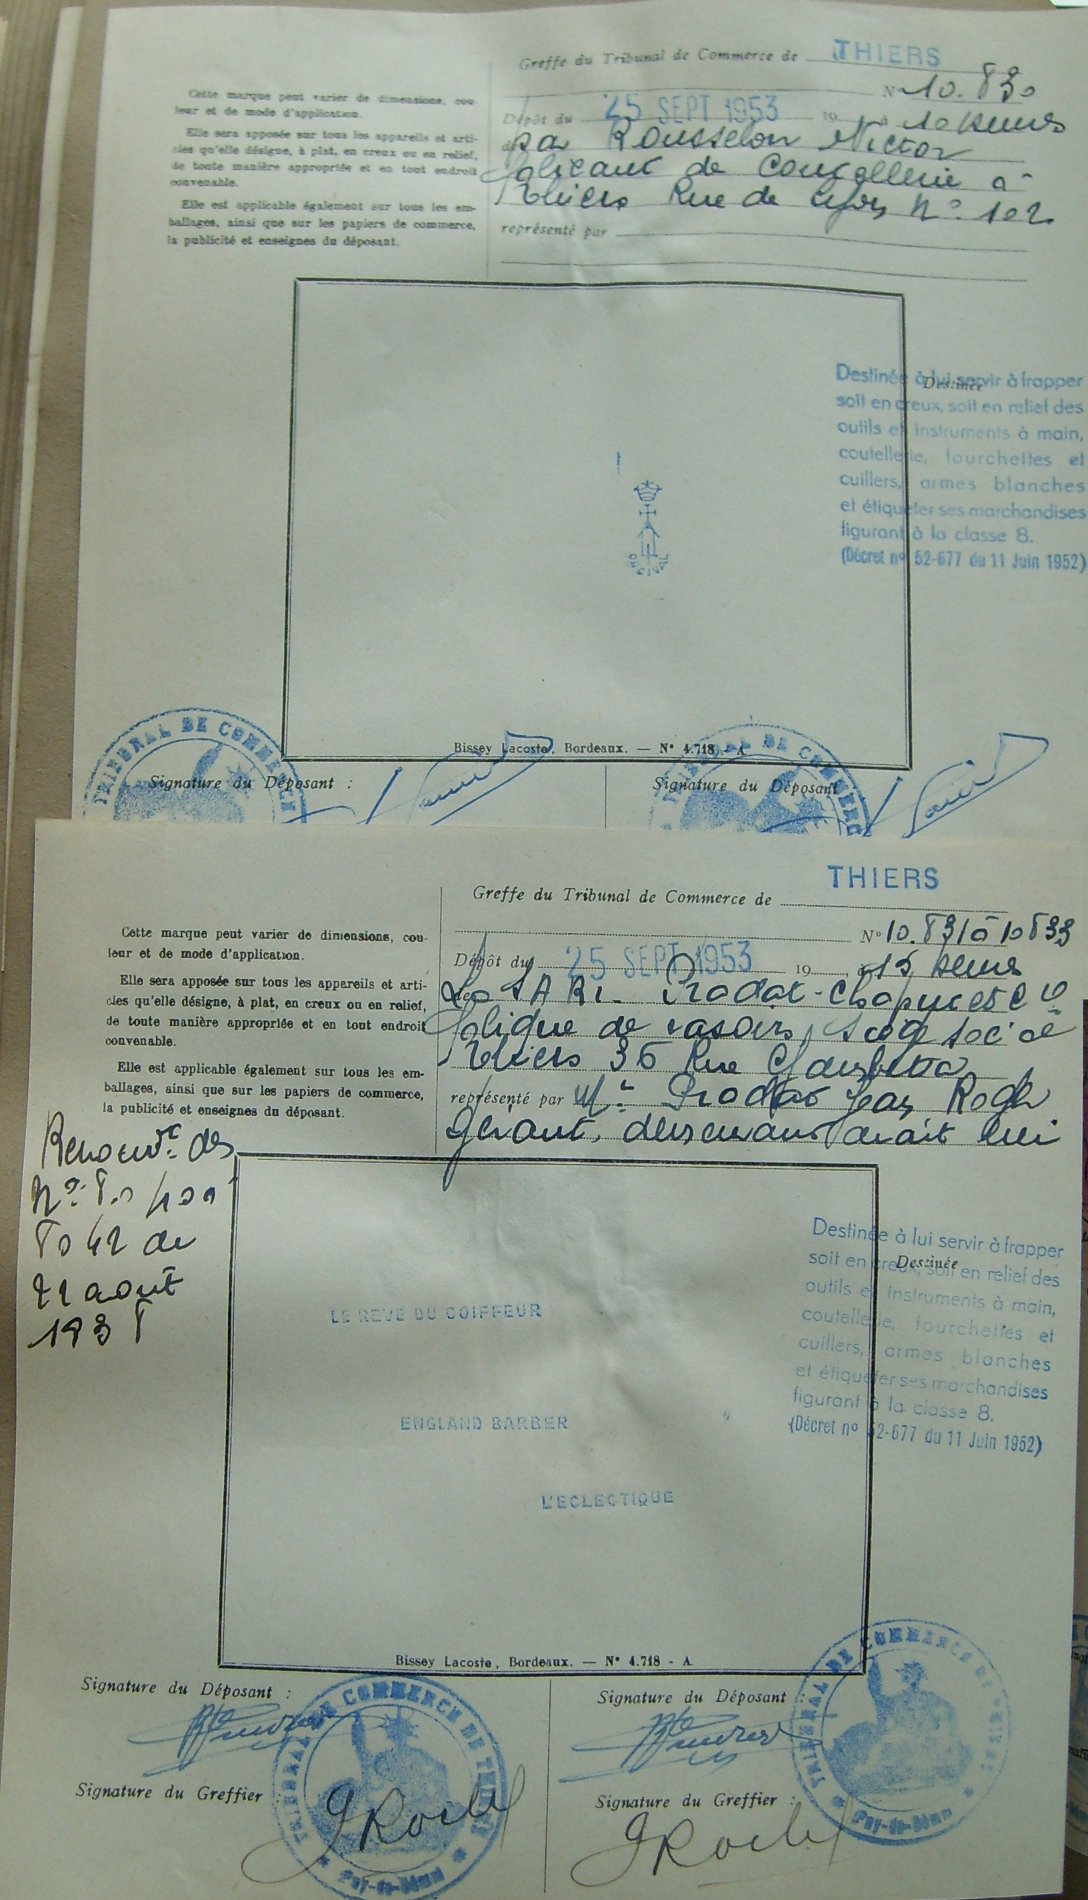 Greffe du Tribunal de Commerce de THIERS
N° 10.830
Dépôt du 25 SEPT 1953 19 à 10 heures
par Rousselon Victor
fabricant de Coutellerie à
Thiers Rue de Lyon N° 102
représenté par
Cette marque peut varier de dimensions, cou-
leur et de mode d'application.
Elle sera apposée sur tous les appareils et arti-
cles qu'elle désigne, à plat, en creux ou en relief,
de toute manière appropriée et en tout endroit
convenable.
Elle est applicable également sur tous les em-
ballages, ainsi que sur les papiers de commerce,
la publicité et enseignes du déposant.
Destinée
Destinée à lui servir à frapper
soit en creux, soit en relief des
outils et instruments à main,
coutellerie, fourchettes et
cuillers, armes blanches
et étiqueter ses marchandises
figurant à la classe 8.
(Décret n° 52-677 du 11 Juin 1952)
Bissey Lacoste, Bordeaux. — N° 4.718 - A
Signature du Déposant :
TRIBUNAL DE COMMERCE
Signature du Déposant
TRIBUNAL DE COMMERC
Greffe du Tribunal de Commerce de THIERS
N° 10.831 à 10833
Dépôt du 25 SEPT 1953 19 à 15 heures
La SARL Prodat-Chapuis et Cie
fabrique de rasoirs, siège social
Thiers 36 Rue Gambetta
représenté par Mr Prodat Jean Roger
Gérant, demeurant audit lieu
Cette marque peut varier de dimensions, cou-
leur et de mode d'application.
Elle sera apposée sur tous les appareils et arti-
cles qu'elle désigne, à plat, en creux ou en relief,
de toute manière appropriée et en tout endroit
convenable.
Elle est applicable également sur tous les em-
ballages, ainsi que sur les papiers de commerce,
la publicité et enseignes du déposant.
Renouvt des
8042 du
22 août
1938
LE REVE DU COIFFEUR
ENGLAND BARBER
L'ECLECTIQUE
Destinée
Destinée à lui servir à frapper
soit en creux, soit en relief des
outils et instruments à main,
coutellerie, fourchettes et
cuillers, armes blanches
et étiqueter ses marchandises
figurant à la classe 8.
(Décret n° 52-677 du 11 Juin 1952)
Bissey Lacoste, Bordeaux. — N° 4.718 - A
Signature du Déposant :
Signature du Greffier :
TRIBUNAL DE COMMERCE DE THIERS
Puy-de-Dôme
Signature du Déposant :
Signature du Greffier :
TRIBUNAL DE COMMERCE DE THIERS
Puy-de-Dôme